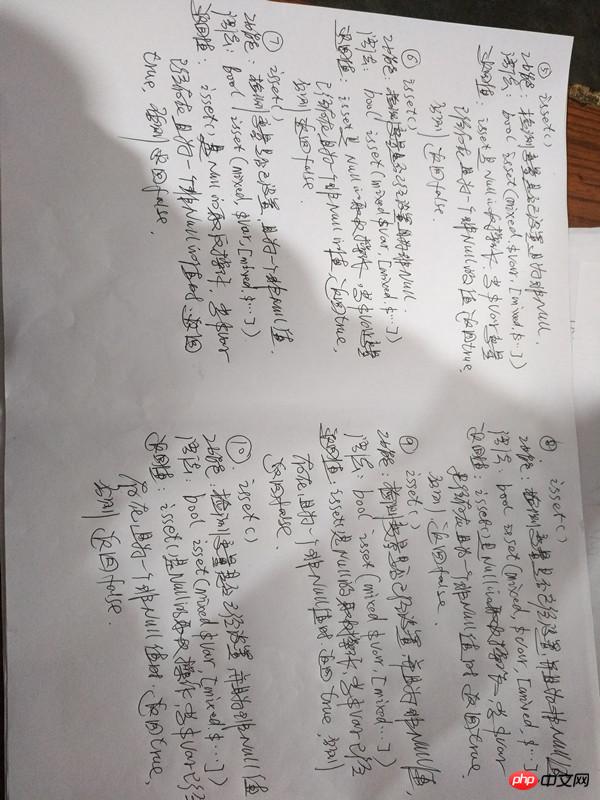 ⑤ isset()
功能：检测变量是否已设置且为非Null.
语法：bool isset(mixed $var, [mixed $…])
返回值：isset是Null的取反操作. 当$var变量
已经存在且为一个非Null的值返回true
否则返回false.
⑥ isset()
功能：检测变量是否已经设置且为非Null.
语法：bool isset(mixed $var, [mixed $…])
返回值：isset是Null的取反操作，当$var变量
已经存在且为一个非Null的值，返回true，
否则返回false.
⑦ isset()
功能：检测变量是否已经设置，且为一个非Null值.
语法：bool isset(mixed $var, [mixed $…])
返回值：isset()是Null的取反操作，当$var
已经存在且为一个非Null的值时返回
true, 否则返回false.
⑧ isset()
功能：检测变量是否已经设置并且为非Null值
语法：bool isset(mixed, $var [mixed, $…])
返回值：isset()是Null的取反操作 当$var
已经存在且为一个非Null值时返回true.
否则返回false.
⑨ isset()
功能：检测变量是否已经设置并且为非Null值，
语法：bool isset(mixed $var, [mixed…])
返回值：isset是Null的取反操作，当$var已经
存在，且为一个非Null值时返回true，否则
返回false.
⑩. isset()
功能：检测变量是否已经设置并且为非Null值
语法：bool isset(mixed $var [mixed $…])
返回值：isset()是Null的取反操作，当$var已经
存在，且为一个非Null值时. 返回true，
否则返回false.
php 中文网